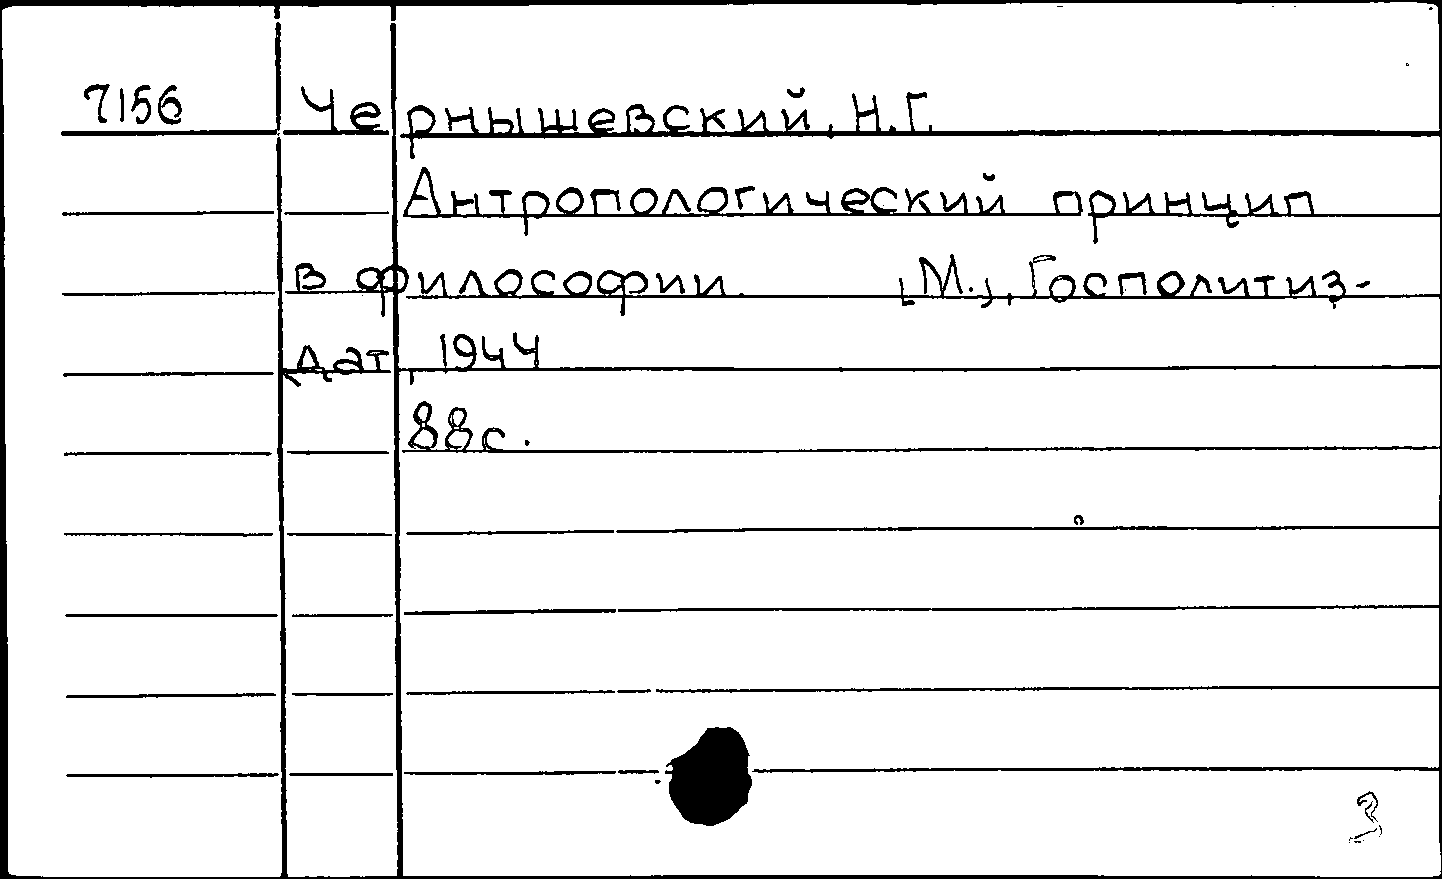 7156 Чернышевский, Н.Г.
Антропологический принцип
в философии. [М.], Госполитиз-
дат, 1944
88с.
3